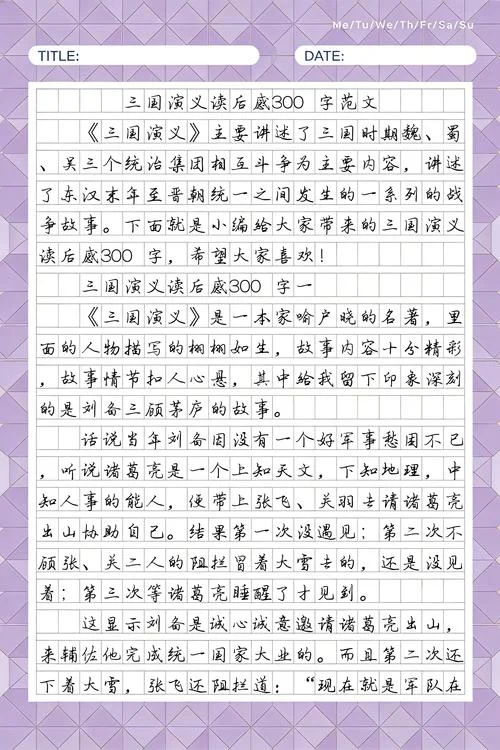 Me/Tu/We/Th/Fr/Sa/Su
TITLE: DATE:
三国演义读后感300 字范文
《三国演义》主要讲述了三国时期魏、蜀
、吴三个统治集团相互斗争为主要内容，讲述
了东汉末年至晋朝统一之间发生的一系列的战
争故事。下面就是小编给大家带来的三国演义
读后感300 字，希望大家喜欢！
三国演义读后感300 字一
《三国演义》是一本家喻户晓的名著，里
面的人物描写的栩栩如生，故事内容十分精彩
，故事情节扣人心悬，其中给我留下印象深刻
的是刘备三顾茅庐的故事。
话说当年刘备因没有一个好军事愁困不已
，听说诸葛亮是一个上知天文，下知地理，中
知人事的能人，便带上张飞、关羽去请诸葛亮
出山协助自己。结果第一次没遇见；第二次不
顾张、关二人的阻拦冒着大雪去的，还是没见
着；第三次等诸葛亮睡醒了才见到。
这显示刘备是诚心诚意邀请诸葛亮出山，
来辅佐他完成统一国家大业的。而且第二次还
下着大雪，张飞还阻拦道：“现在就是军队在